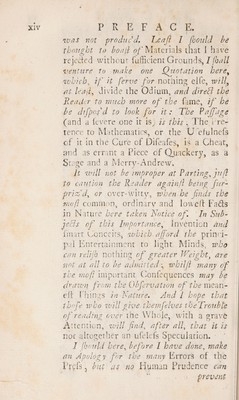 xiv PREFACE.
was not produc'd. Least I should be
thought to boast of Materials that I have
rejected without sufficient Grounds, I shall
venture to make one Quotation here,
which, if it serve for nothing else, will,
at least, divide the Odium, and direct the
Reader to much more of the same, if he
be dispos'd to look for it: The Passage
(and a severe one it is) is this; The Pre-
tence to Mathematics, or the Usefulness
of it in the Cure of Diseases, is a Cheat,
and as errant a Piece of Quackery, as a
Stage and a Merry-Andrew.
It will not be improper at Parting, just
to caution the Reader against being sur-
priz'd, or over-witty, when he finds the
most common, ordinary and lowest Facts
in Nature here taken Notice of. In Sub-
jects of this Importance, Invention and
smart Conceits, which afford the princi-
pal Entertainment to light Minds, who
can relish nothing of greater Weight, are
not at all to be admitted; whilst many of
the most important Consequences may be
drawn from the Observation of the mean-
est Things in Nature. And I hope that
those who will give themselves the Trouble
of reading over the Whole, with a grave
Attention, will find, after all, that it is
not altogether an useless Speculation.
I should here, before I have done, make
an Apology for the many Errors of the
Press; but as no Human Prudence can
prevent